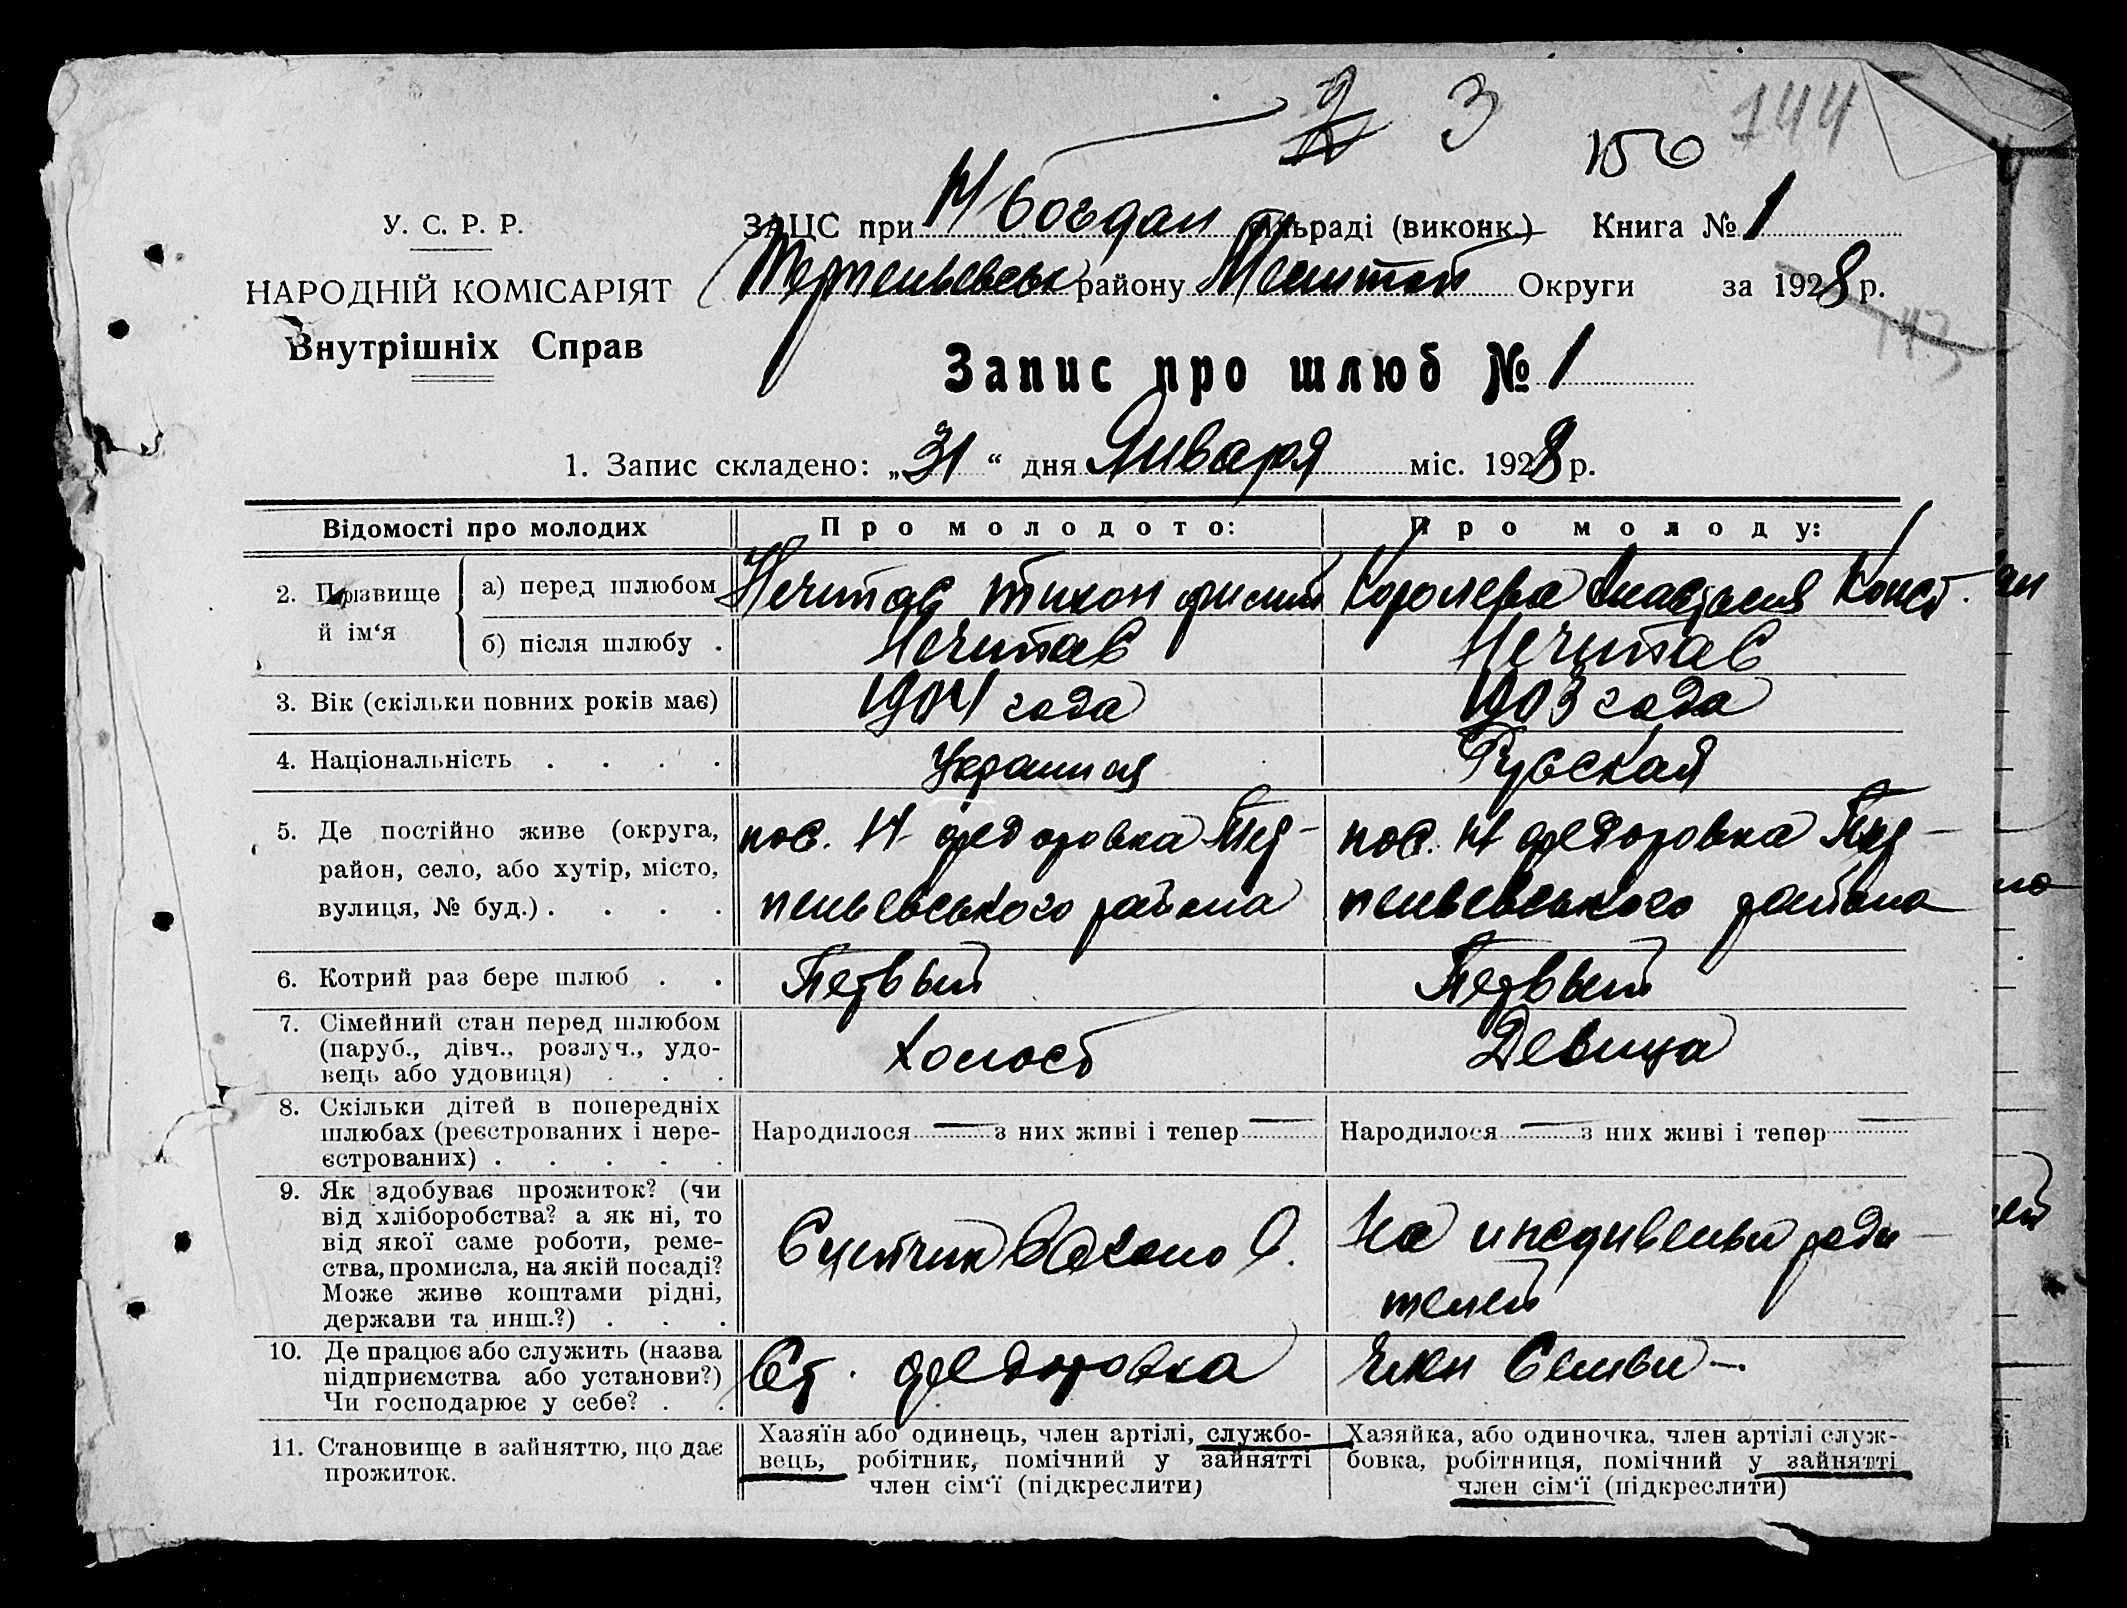 2 3
156 144
У. С. Р. Р.
ЗАЦС при Н Богдан сільраді (виконк.) Книга № 1
НАРОДНІЙ КОМІСАРІЯТ
Терпеньевськ району Мелитоп Округи за 1928 р.
143
Внутрішніх Справ
Запис про шлюб № 1
1. Запис складено: „31“ дня Января міс. 1928 р.
Відомості про молодих Про молодого: Про молоду:
2. Прізвище й ім‘я
а) перед шлюбом Нечитав Тихон Филип Королева Анастасия Конст.
б) після шлюбу . Нечитав Нечитав
3. Вік (скільки повних років має) 1904 года 1903 года
4. Національність . . . . Русская
5. Де постійно живе (округа, район, село, або хутір, місто, вулиця, № буд.) . . . .
пос. Н Федоровка Тер-
пеньевського района
пос. Н Федоровка Тер-
пеньевського района
6. Котрий раз бере шлюб . . Первый Первый
7. Сімейний стан перед шлюбом
(паруб., дівч., розлуч., удо-
вець або удовиця) . . .
Холост Девица
8. Скільки дітей в попередніх
шлюбах (реєстрованих і нере-
єстрованих) . . . . .
Народилося — з них живі і тепер — Народилося — з них живі і тепер —
9. Як здобуває прожиток? (чи
від хліборобства? а як ні, то
від якої саме роботи, реме-
ства, промисла, на якій посаді?
Може живе коштами рідні,
держави та инш.?) . . .
Сцепчик
На иждивеньи роди-
телей
10. Де працює або служить (назва
підприємства або установи?)
Чи господарює у себе? . .
Ст. Федоровка Член Семьи —.
11. Становище в зайняттю, що дає
прожиток.
Хазяїн або одинець, член артілі, службо-
вець, робітник, помічний у зайнятті
член сім‘ї (підкреслити)
Хазяйка, або одиночка, член артілі служ-
бовка, робітниця, помічний у зайнятті
член сім‘ї (підкреслити)